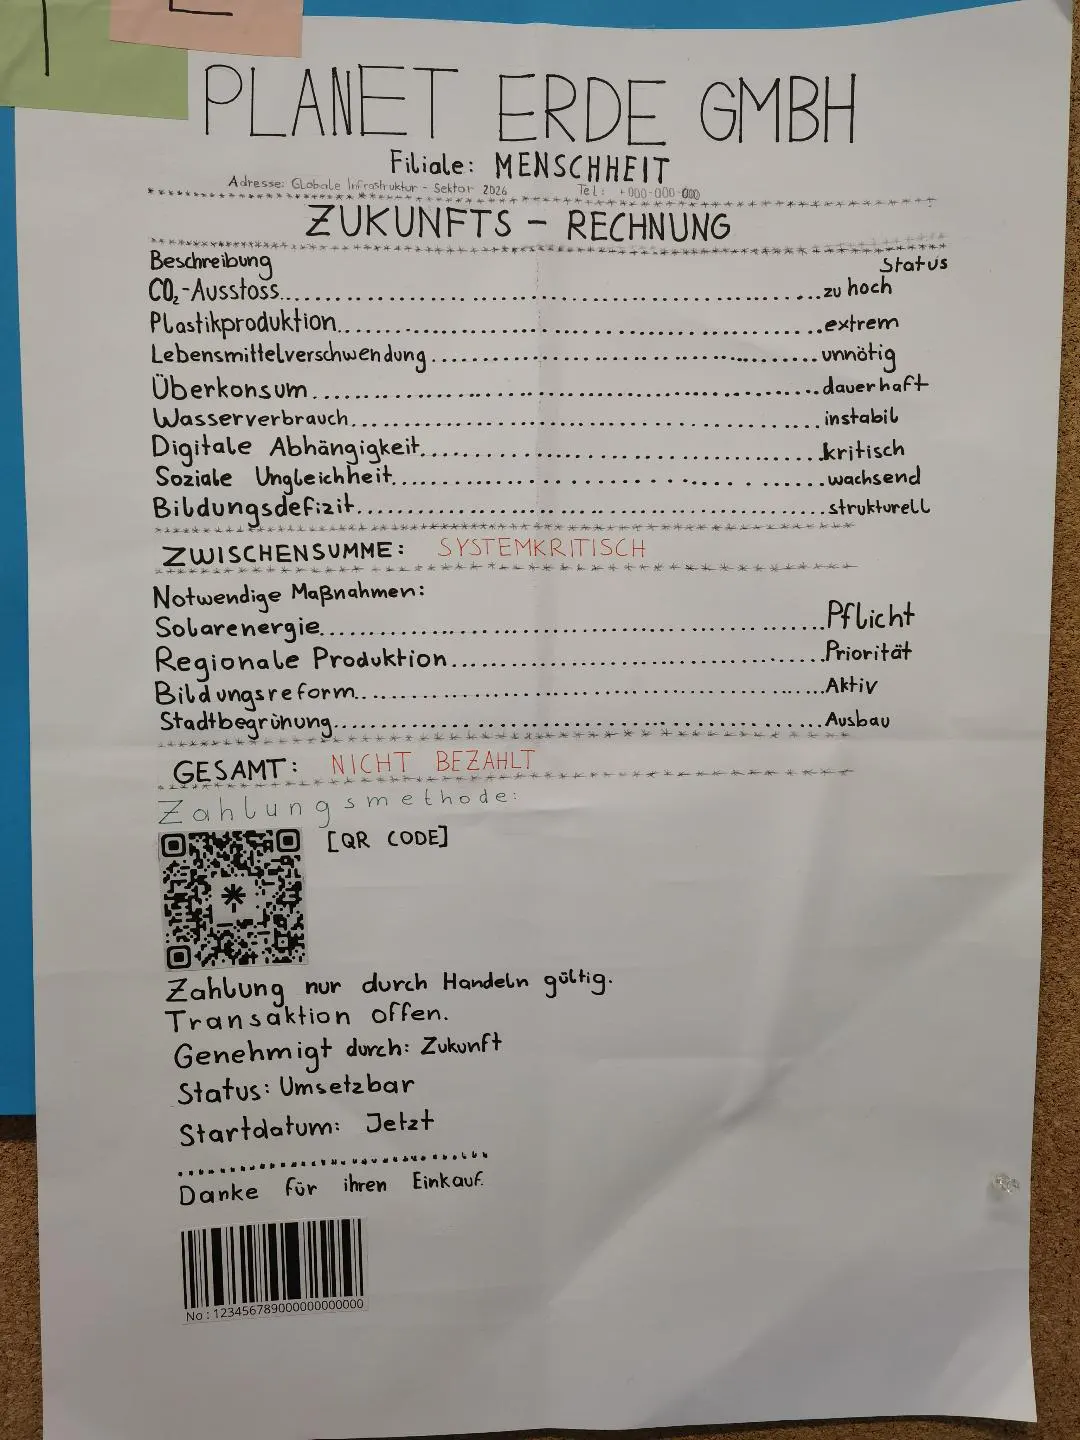 PLANET ERDE GMBH
Filiale: MENSCHHEIT
Adresse: Globale Infrastruktur - Sektor 2026 Tel: +000-000-000
ZUKUNFTS - RECHNUNG
Beschreibung Status
CO₂-Ausstoss............................................................zu hoch
Plastikproduktion......................................................extrem
Lebensmittelverschwendung..........................................unnötig
Überkonsum............................................................dauerhaft
Wasserverbrauch......................................................instabil
Digitale Abhängigkeit................................................kritisch
Soziale Ungleichheit.................................................wachsend
Bildungsdefizit......................................................strukturell
ZWISCHENSUMME: SYSTEMKRITISCH
Notwendige Maßnahmen:
Solarenergie.........................................................Pflicht
Regionale Produktion.................................................Priorität
Bildungsreform.......................................................Aktiv
Stadtbegrünung.......................................................Ausbau
GESAMT: NICHT BEZAHLT
Zahlungsmethode:
[QR CODE]
Zahlung nur durch Handeln gültig.
Transaktion offen.
Genehmigt durch: Zukunft
Status: Umsetzbar
Startdatum: Jetzt
Danke für ihren Einkauf.
No : 123456789000000000000